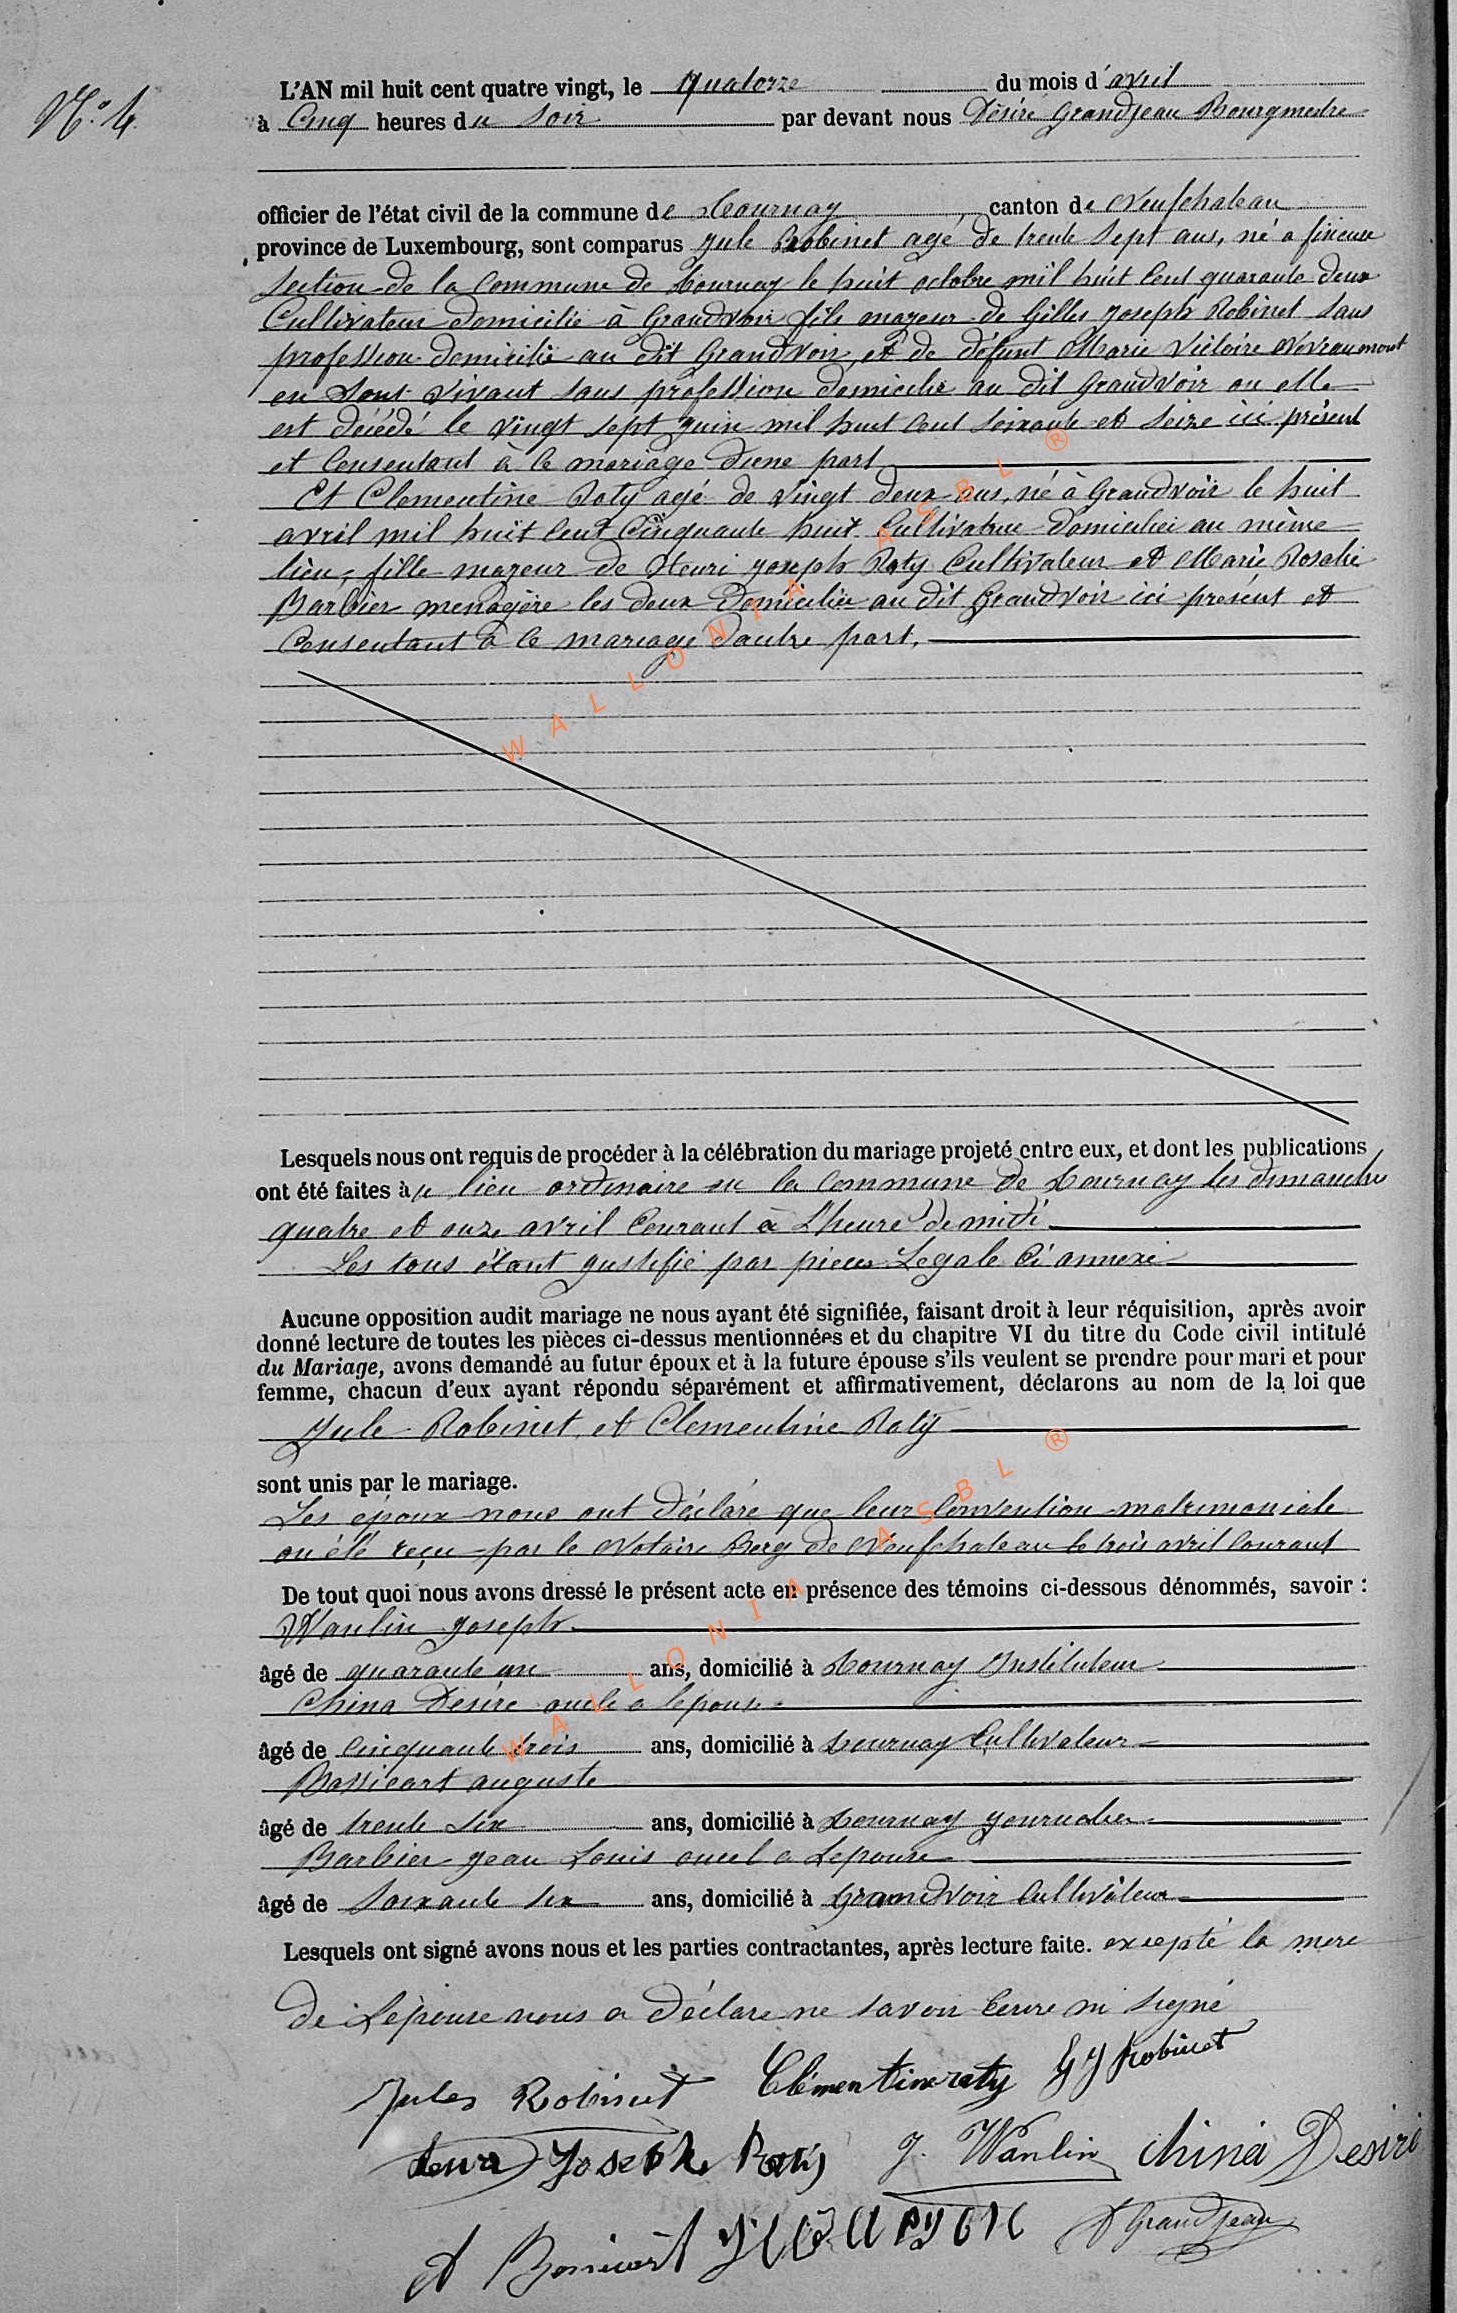 N.° 4.
L'AN mil huit cent quatre vingt, le quatorze du mois d'avril
à Cinq heures du soir par devant nous Désiré Grandjean Bourgmestre
officier de l'état civil de la commune de Tournay canton de Neufchateau
province de Luxembourg, sont comparus Jule Robinet agé de trente sept ans, né a
section de la Commune de Tournay le huit octobre mil huit cent quarante deux
Cultivateur domicilié à Grandvoir fils majeur de Gilles joseph Robinet sans
profession domicilié au dit Grandvoir, et de défunt Marie Victoire Névraumont
en sont vivant sans profession domicilié au dit Grandvoir ou elle
est décédé le vingt sept juin mil huit cent soixante et seize ici présent
et Consentant à ce mariage d'une part
Et Clementine Roty agé de vingt deux ans, né à Grandvoir le huit
avril mil huit cent cinquante huit Cultivatrice domicilié au même
lieu, fille majeur de Henri joseph Roty Cultivateur et Marie Rosalie
Barbier menagère les deux domicilié au dit Grandvoir ici présent et
Consentant à ce mariage d'autre part.
Lesquels nous ont requis de procéder à la célébration du mariage projeté entre eux, et dont les publications
ont été faites au lieu ordinaire en la Commune de Tournay les dimanches
quatre et onze avril Courant à L'heure de midi
Les tous étant justifié par pieces Legale Ci annexé
Aucune opposition audit mariage ne nous ayant été signifiée, faisant droit à leur réquisition, après avoir
donné lecture de toutes les pièces ci-dessus mentionnées et du chapitre VI du titre du Code civil intitulé
du Mariage, avons demandé au futur époux et à la future épouse s'ils veulent se prendre pour mari et pour
femme, chacun d'eux ayant répondu séparément et affirmativement, déclarons au nom de la loi que
Jule Robinet et Clementine Roty
sont unis par le mariage.
Les époux nous ont déclaré que leur Convention matrimoniale
on été reçu par le Notaire Berg de Neufchateau le trois avril Courant
De tout quoi nous avons dressé le présent acte en présence des témoins ci-dessous dénommés, savoir :
Wanlin joseph
âgé de quarante un ans, domicilié à Tournay Instituteur
China Desire oncle a lepouse
âgé de cinquante trois ans, domicilié à Tournay Cultivateur
Bassicart auguste
âgé de trente six ans, domicilié à Tournay journalier
Barbier jean Louis oncel a Lepouse
âgé de Soixante six ans, domicilié à Grandvoir Cultivateur
Lesquels ont signé avons nous et les parties contractantes, après lecture faite. excepté la mere
de Lépouse nous a déclare ne savoir Ecrire ni signé
Jules Robinet Clémentine raty GJ Robinet
Joseph Raty J. Wanlin China Desiré
A D Grandjean
WALLONIA ASBL ®
WALLONIA ASBL ®